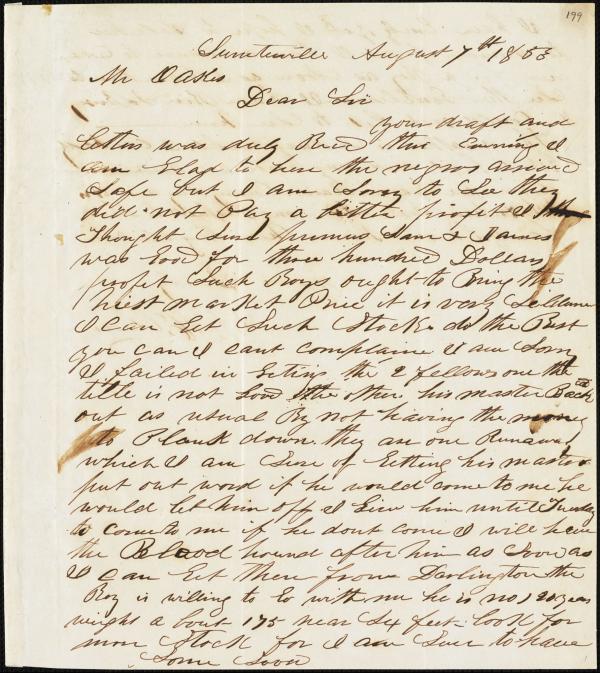 199
Sumterville August 7th 1853
Mr Oakes
Dear Sir
your draft and
letters was duly Recd this Evening I
am Glad to here the negros arrived
Safe but I am Sorry to See they
did not Pay a bettie profit I
Thought Sure primus Sam & James
was Good for three hundred Dollars
profit Such Boys ought to Bring the
hiest market Price it is very Seldome
I can Get Such Stock do the Best
you can I cant complaine I am Sorry
I failed in Geting the 2 fellows one the
title is not Good the other his master Backed
out as usual By not having the money
to Plank down. they are one Runaway
which I am Sure of Getting his master
put out word if he would come to me he
would let him off I Give him until Tuesday
to come to me if he dont come I will have
the Blood hound after him as Soon as
I can Get them from Darlington the
Boy is willing to Go with me he is no 1 20 years
weighs a bout 175 near Six feet. look for
more Stock for I am Sure to have
Some Soon